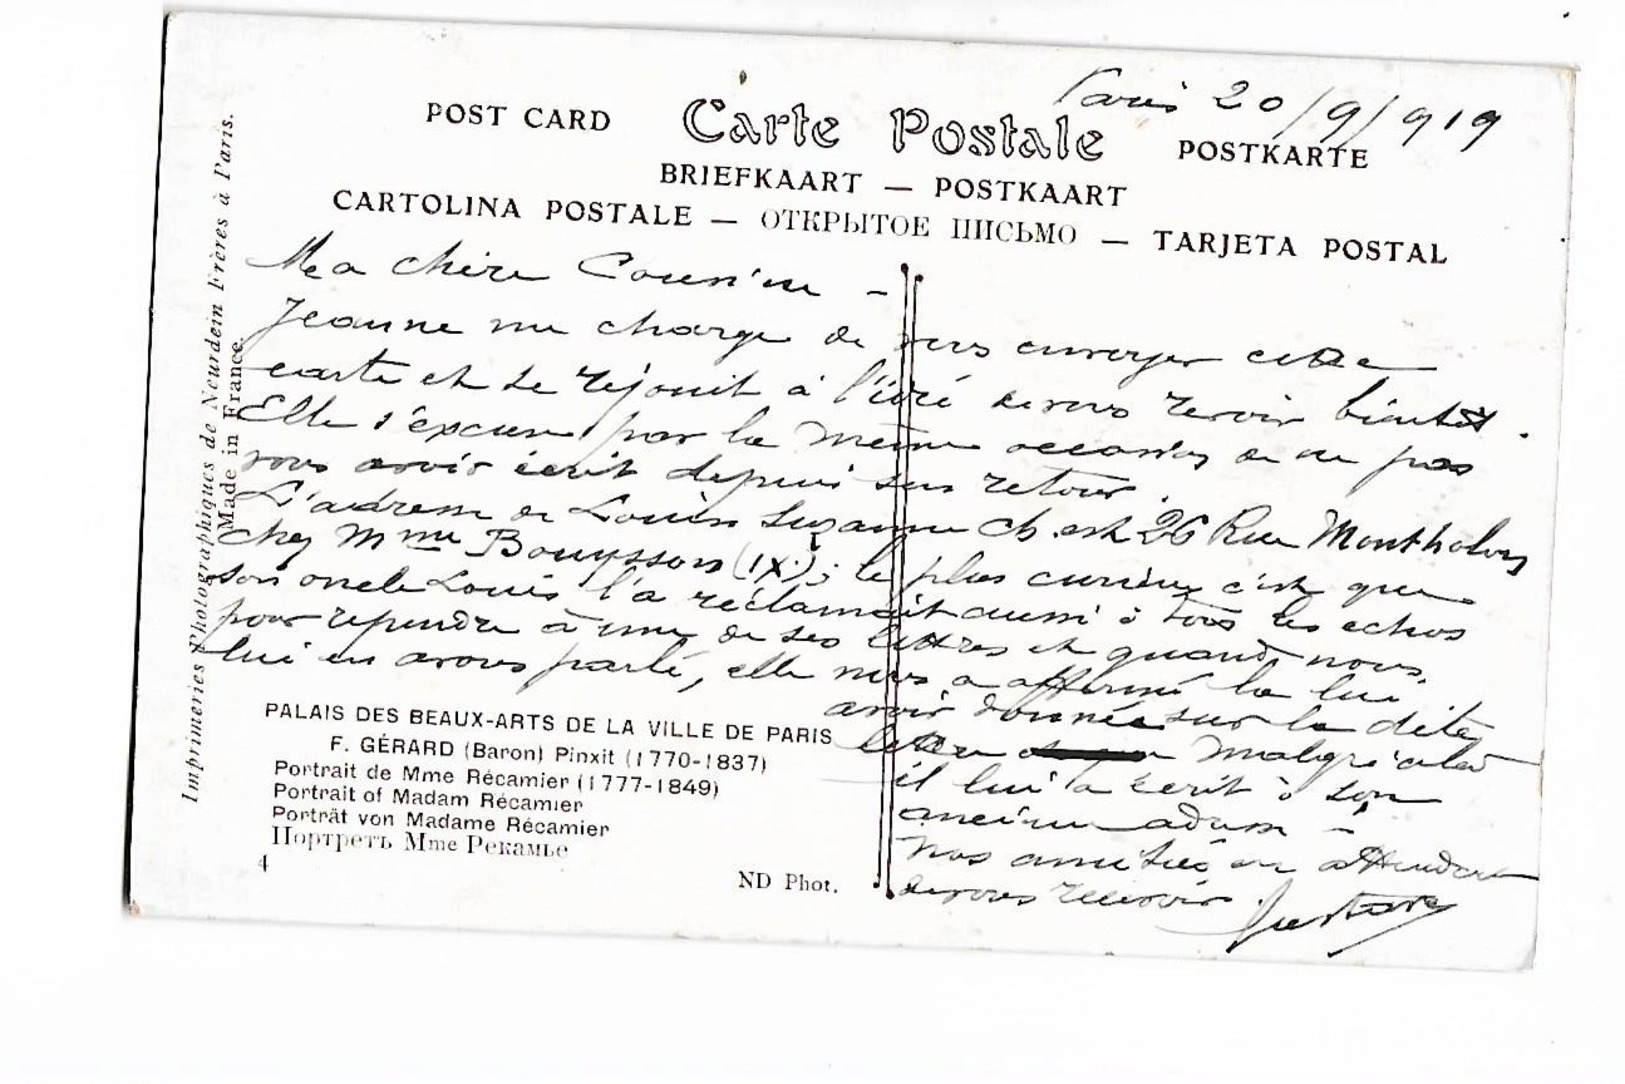 Paris 20/9/919
POST CARD Carte Postale POSTKARTE
BRIEFKAART — POSTKAART
CARTOLINA POSTALE — ОТКРЫТОЕ ПИСЬМО — TARJETA POSTAL
Ma chère Cousine –
Jeanne me charge de vous envoyer cette
carte et se réjouit à l'idée de vous revoir bientôt.
Elle s'excuse par la même occasion de ne pas
vous avoir écrit depuis son retour.
L'adresse de Suzanne Ch. est 26 Rue Montholon
chez Mme Bouysson (IX); le plus curieux c'est que
son oncle Louis l'a réclamait aussi à tous les echos
pour repondre à une de ses lettres et quand nous
lui en avons parlé, elle nous a affirmé la lui
avoir donnée sur la dite
lettre malgré cela
il lui a écrit à son
ancienne adresse –
Nos amitiés en attendant
de vous recevoir.
Gustave
PALAIS DES BEAUX-ARTS DE LA VILLE DE PARIS
F. GÉRARD (Baron) Pinxit (1770-1837)
Portrait de Mme Récamier (1777-1849)
Portrait of Madam Récamier
Porträt von Madame Récamier
Портретъ Mme Рекамье
4
ND Phot.
Imprimeries Photographiques de Neurdein Frères à Paris.
Made in France.